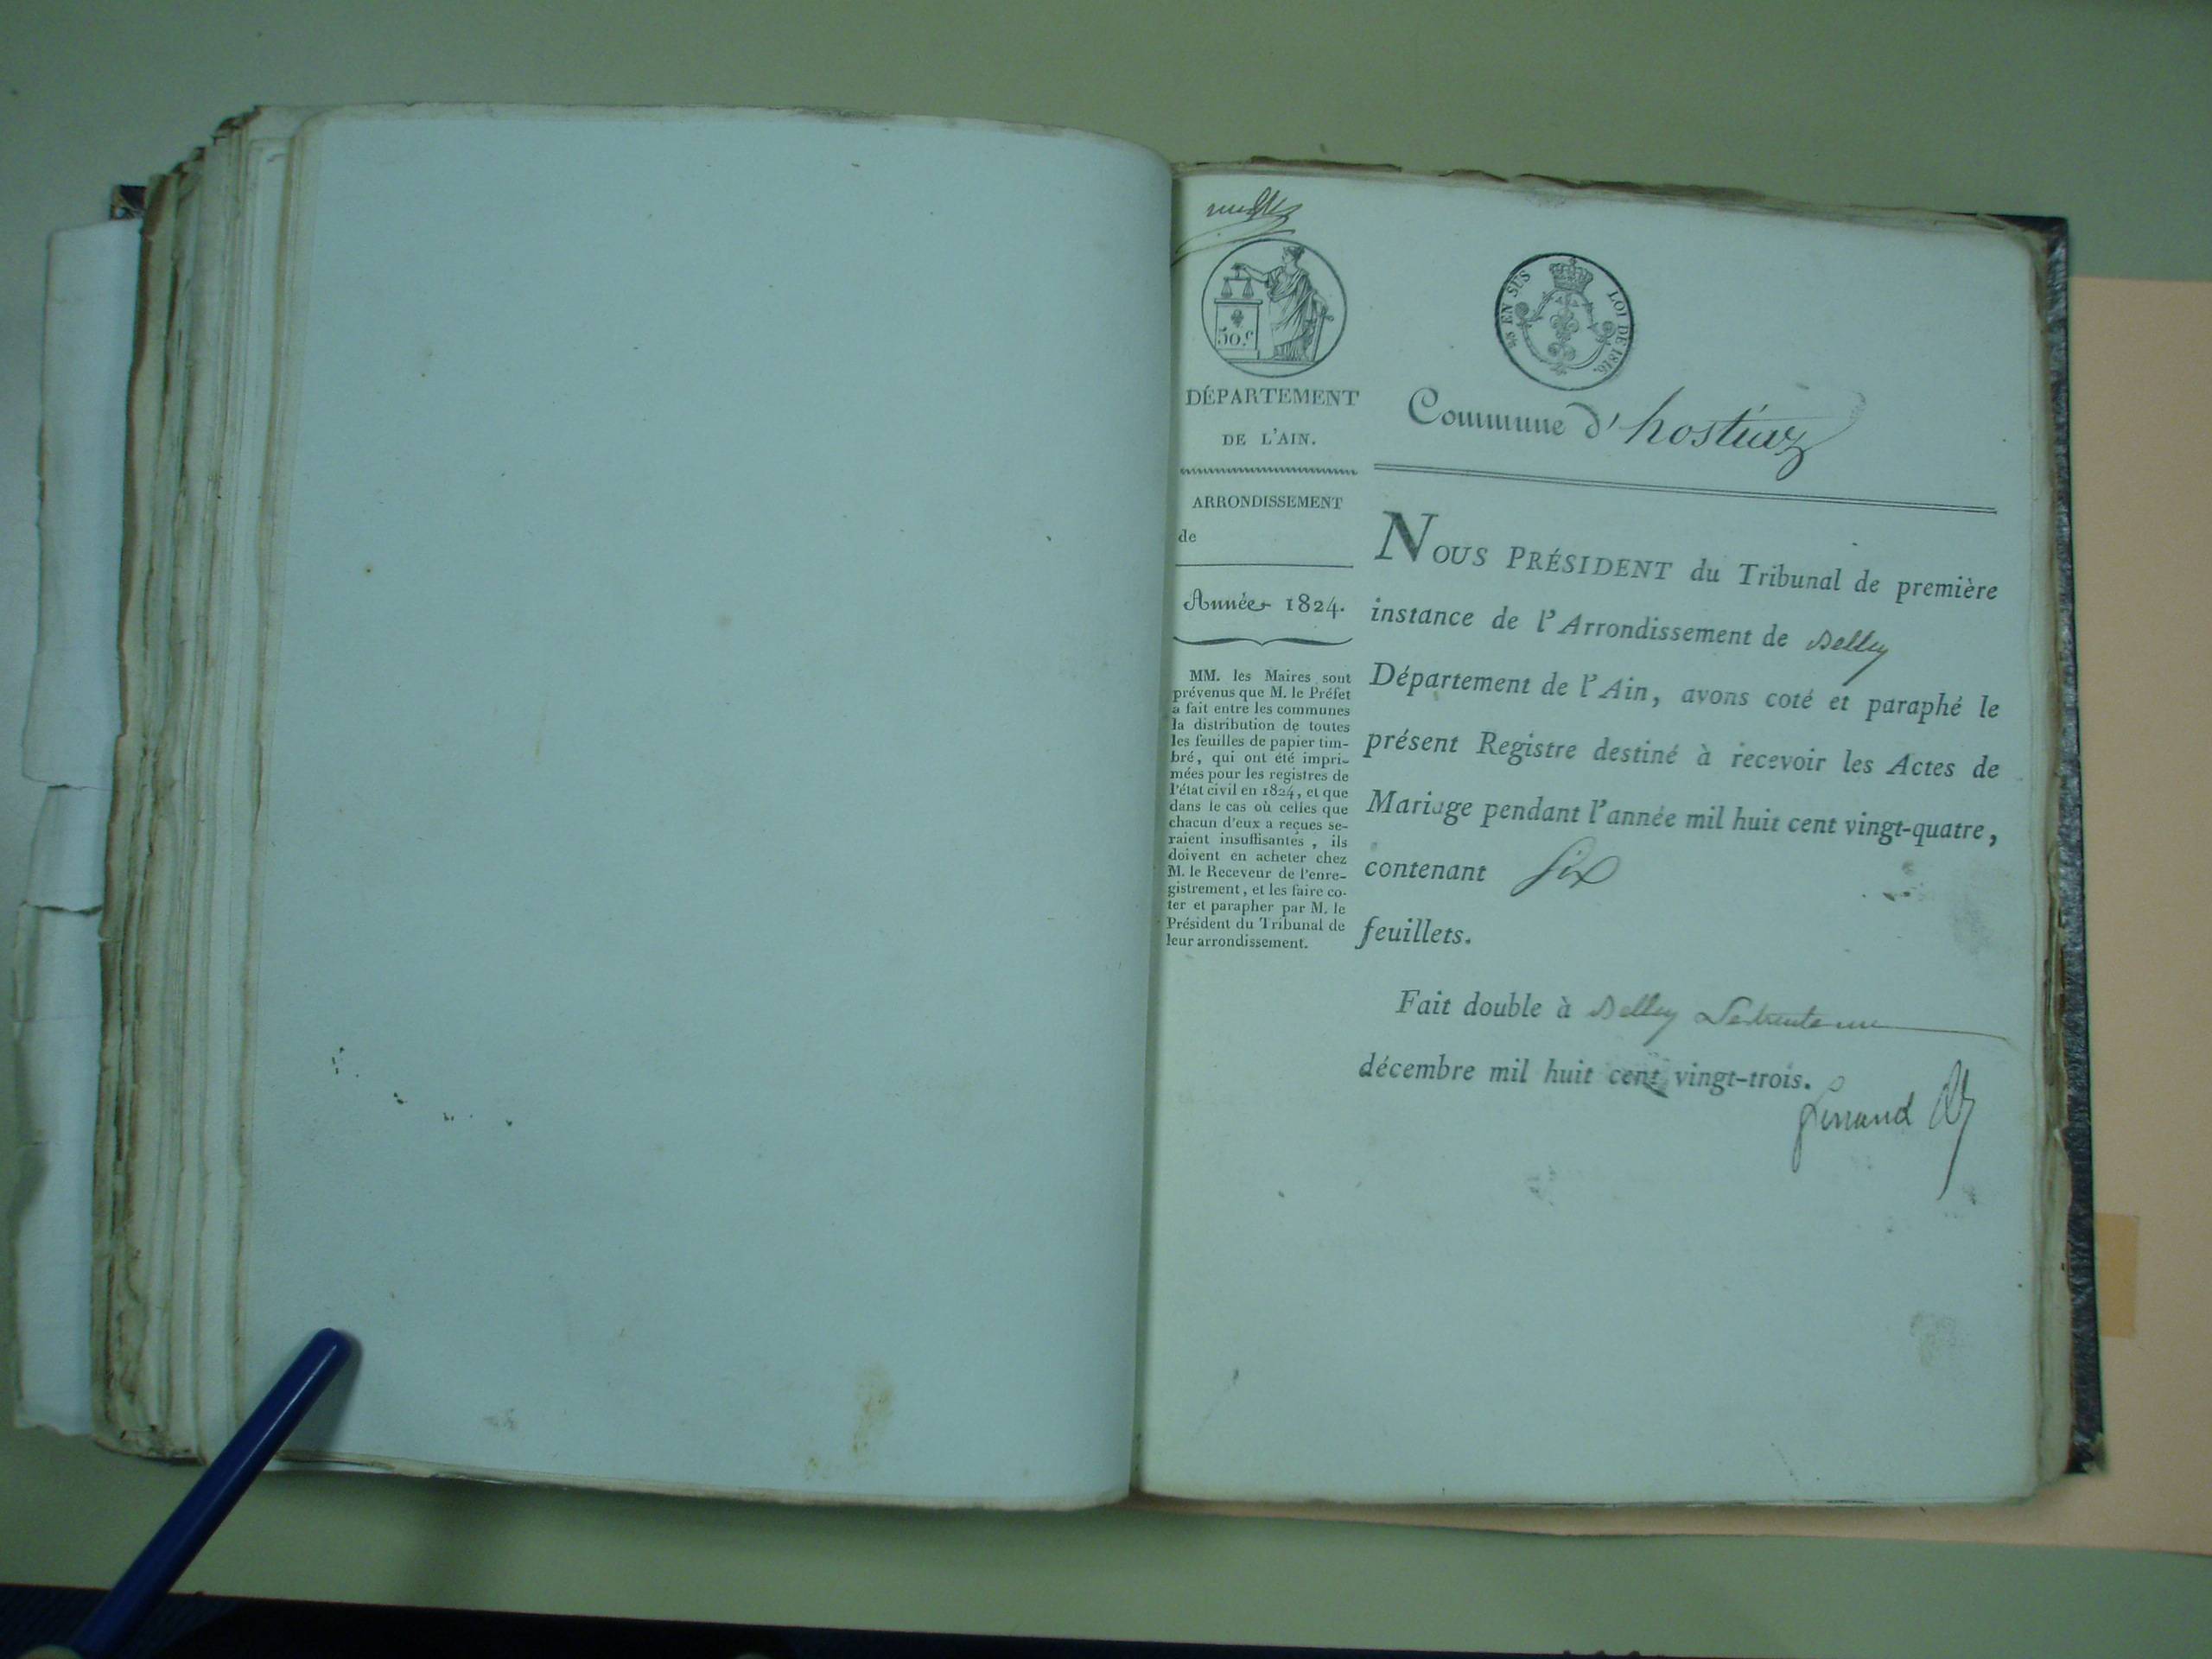 50.c
EN SUS LOI DE 1816.
DÉPARTEMENT
DE L'AIN.
ARRONDISSEMENT
de
Année 1824.
MM. les Maires sont
prévenus que M. le Préfet
a fait entre les communes
la distribution de toutes
les feuilles de papier tim-
bré, qui ont été impri-
mées pour les registres de
l'état civil en 1824, et que
dans le cas où celles que
chacun d'eux a reçues se-
raient insuffisantes, ils
doivent en acheter chez
M. le Receveur de l'enre-
gistrement, et les faire co-
ter et parapher par M. le
Président du Tribunal de
leur arrondissement.
Commune d'hostiaz
NOUS PRÉSIDENT du Tribunal de première
instance de l'Arrondissement de Belley
Département de l'Ain, avons coté et paraphé le
présent Registre destiné à recevoir les Actes de
Mariage pendant l'année mil huit cent vingt-quatre,
contenant Six
feuillets.
Fait double à Belley Le trente un
décembre mil huit cent vingt-trois.